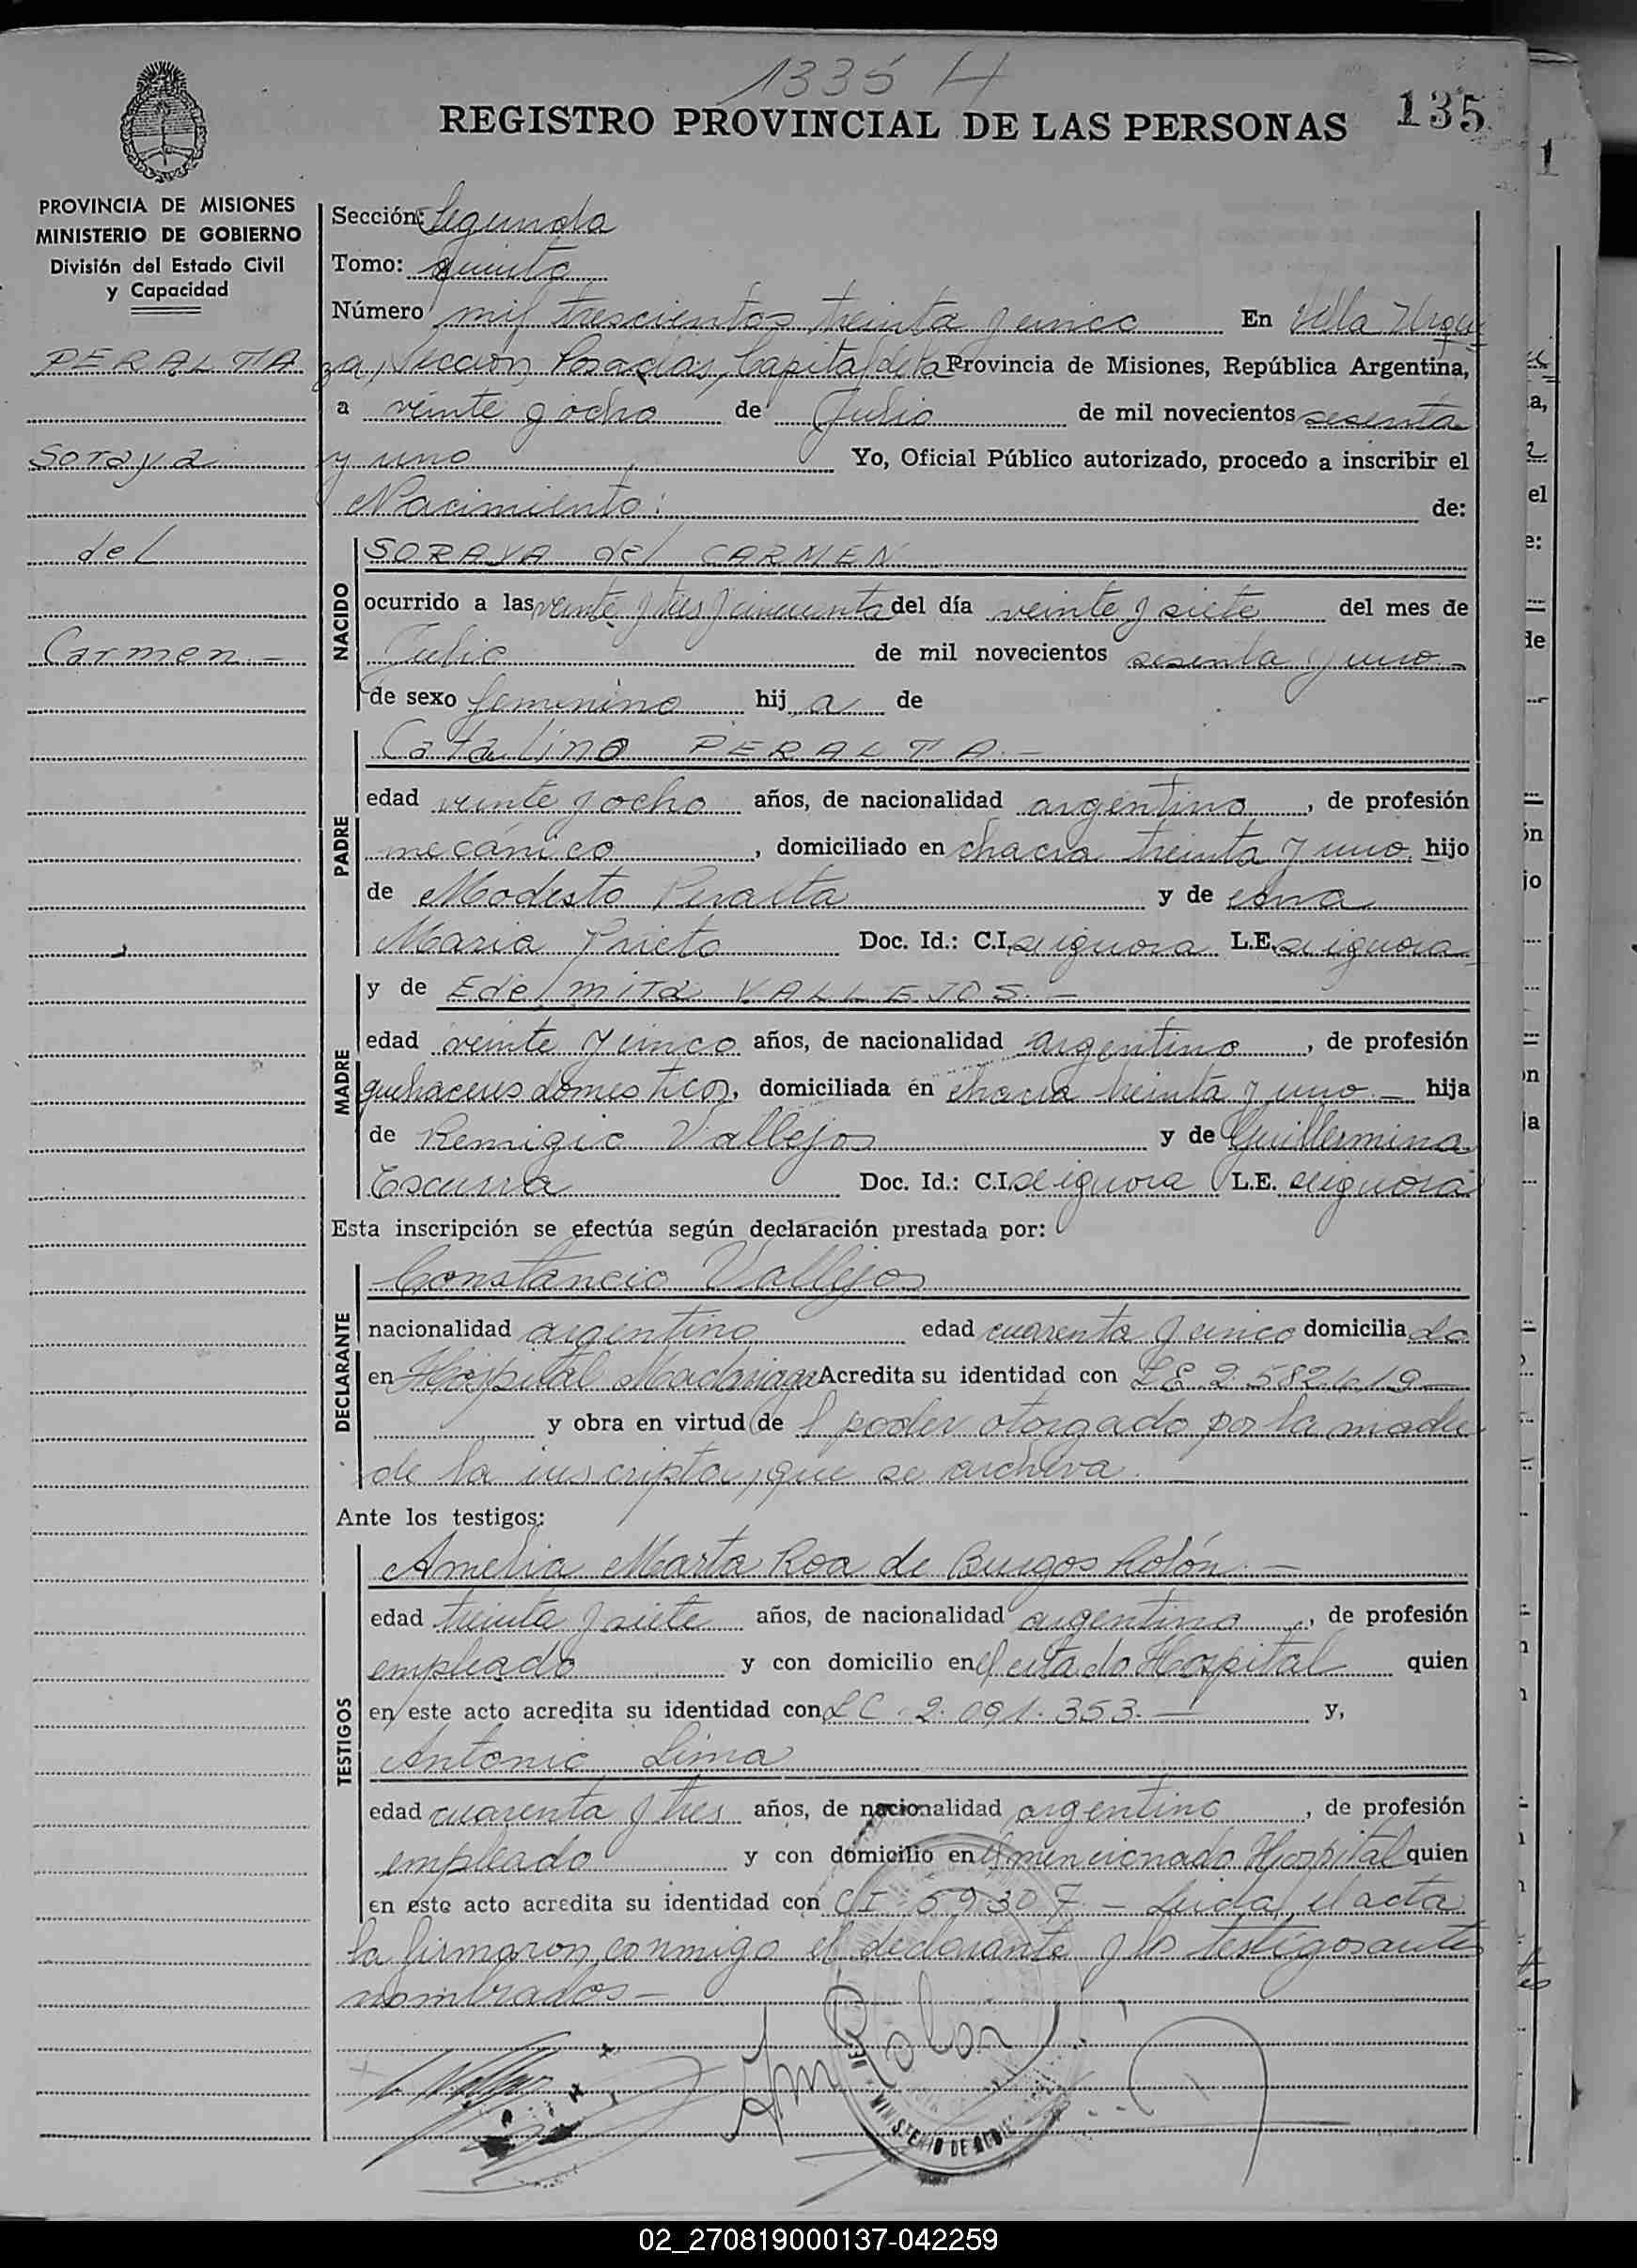 1335 H
REGISTRO PROVINCIAL DE LAS PERSONAS
135
PROVINCIA DE MISIONES
MINISTERIO DE GOBIERNO
División del Estado Civil
y Capacidad
PERALTA
Soraya
del
Carmen.-
Sección: Segunda
Tomo: quinto
Número mil trescientos treinta y cinco En Villa Urqui
za, Sección Posadas, Capital de la Provincia de Misiones, República Argentina,
a veinte y ocho de Julio de mil novecientos sesenta
y uno Yo, Oficial Público autorizado, procedo a inscribir el
Nacimiento: de:
NACIDO
SORAYA del CARMEN
ocurrido a las veinte y tres y cincuenta del día veinte y siete del mes de
Julio de mil novecientos sesenta y uno.-
de sexo femenino hij a de
PADRE
Catalino PERALTA.-
edad veinte y ocho años, de nacionalidad argentino, de profesión
mecánico, domiciliado en chacra treinta y uno. hijo
de Modesto Peralta y de
Maria Prieto Doc. Id.: C.I. se ignora L.E. se ignora
MADRE
y de Edelmira VALLEJOS.-
edad veinte y cinco años, de nacionalidad argentina, de profesión
quehaceres domesticos, domiciliada en chacra treinta y uno.- hija
de Remigio Vallejos y de Guillermina
Escurra Doc. Id.: C.I. se ignora L.E. se ignora
Esta inscripción se efectúa según declaración prestada por:
DECLARANTE
Constancio Vallejos
nacionalidad argentino edad cuarenta y cinco domicilia do
en Hospital Madariaga Acredita su identidad con LE 2.582.419-
y obra en virtud de l poder otorgado por la madre
de la inscripta, que se archiva.
Ante los testigos:
TESTIGOS
Amelia Marta Roa de Burgos Rolón.-
edad treinta y siete años, de nacionalidad argentina, de profesión
empleado y con domicilio en el citado Hospital quien
en este acto acredita su identidad con LC. 2.091.353.- y,
Antonio Lima
edad cuarenta y tres años, de nacionalidad argentino, de profesión
empleado y con domicilio en el mencionado Hospital quien
en este acto acredita su identidad con CI 59307.- Leida el acta
la firmaron conmigo el declarante y los testigos antes
nombrados-
MINISTERIO DE
02_270819000137-042259